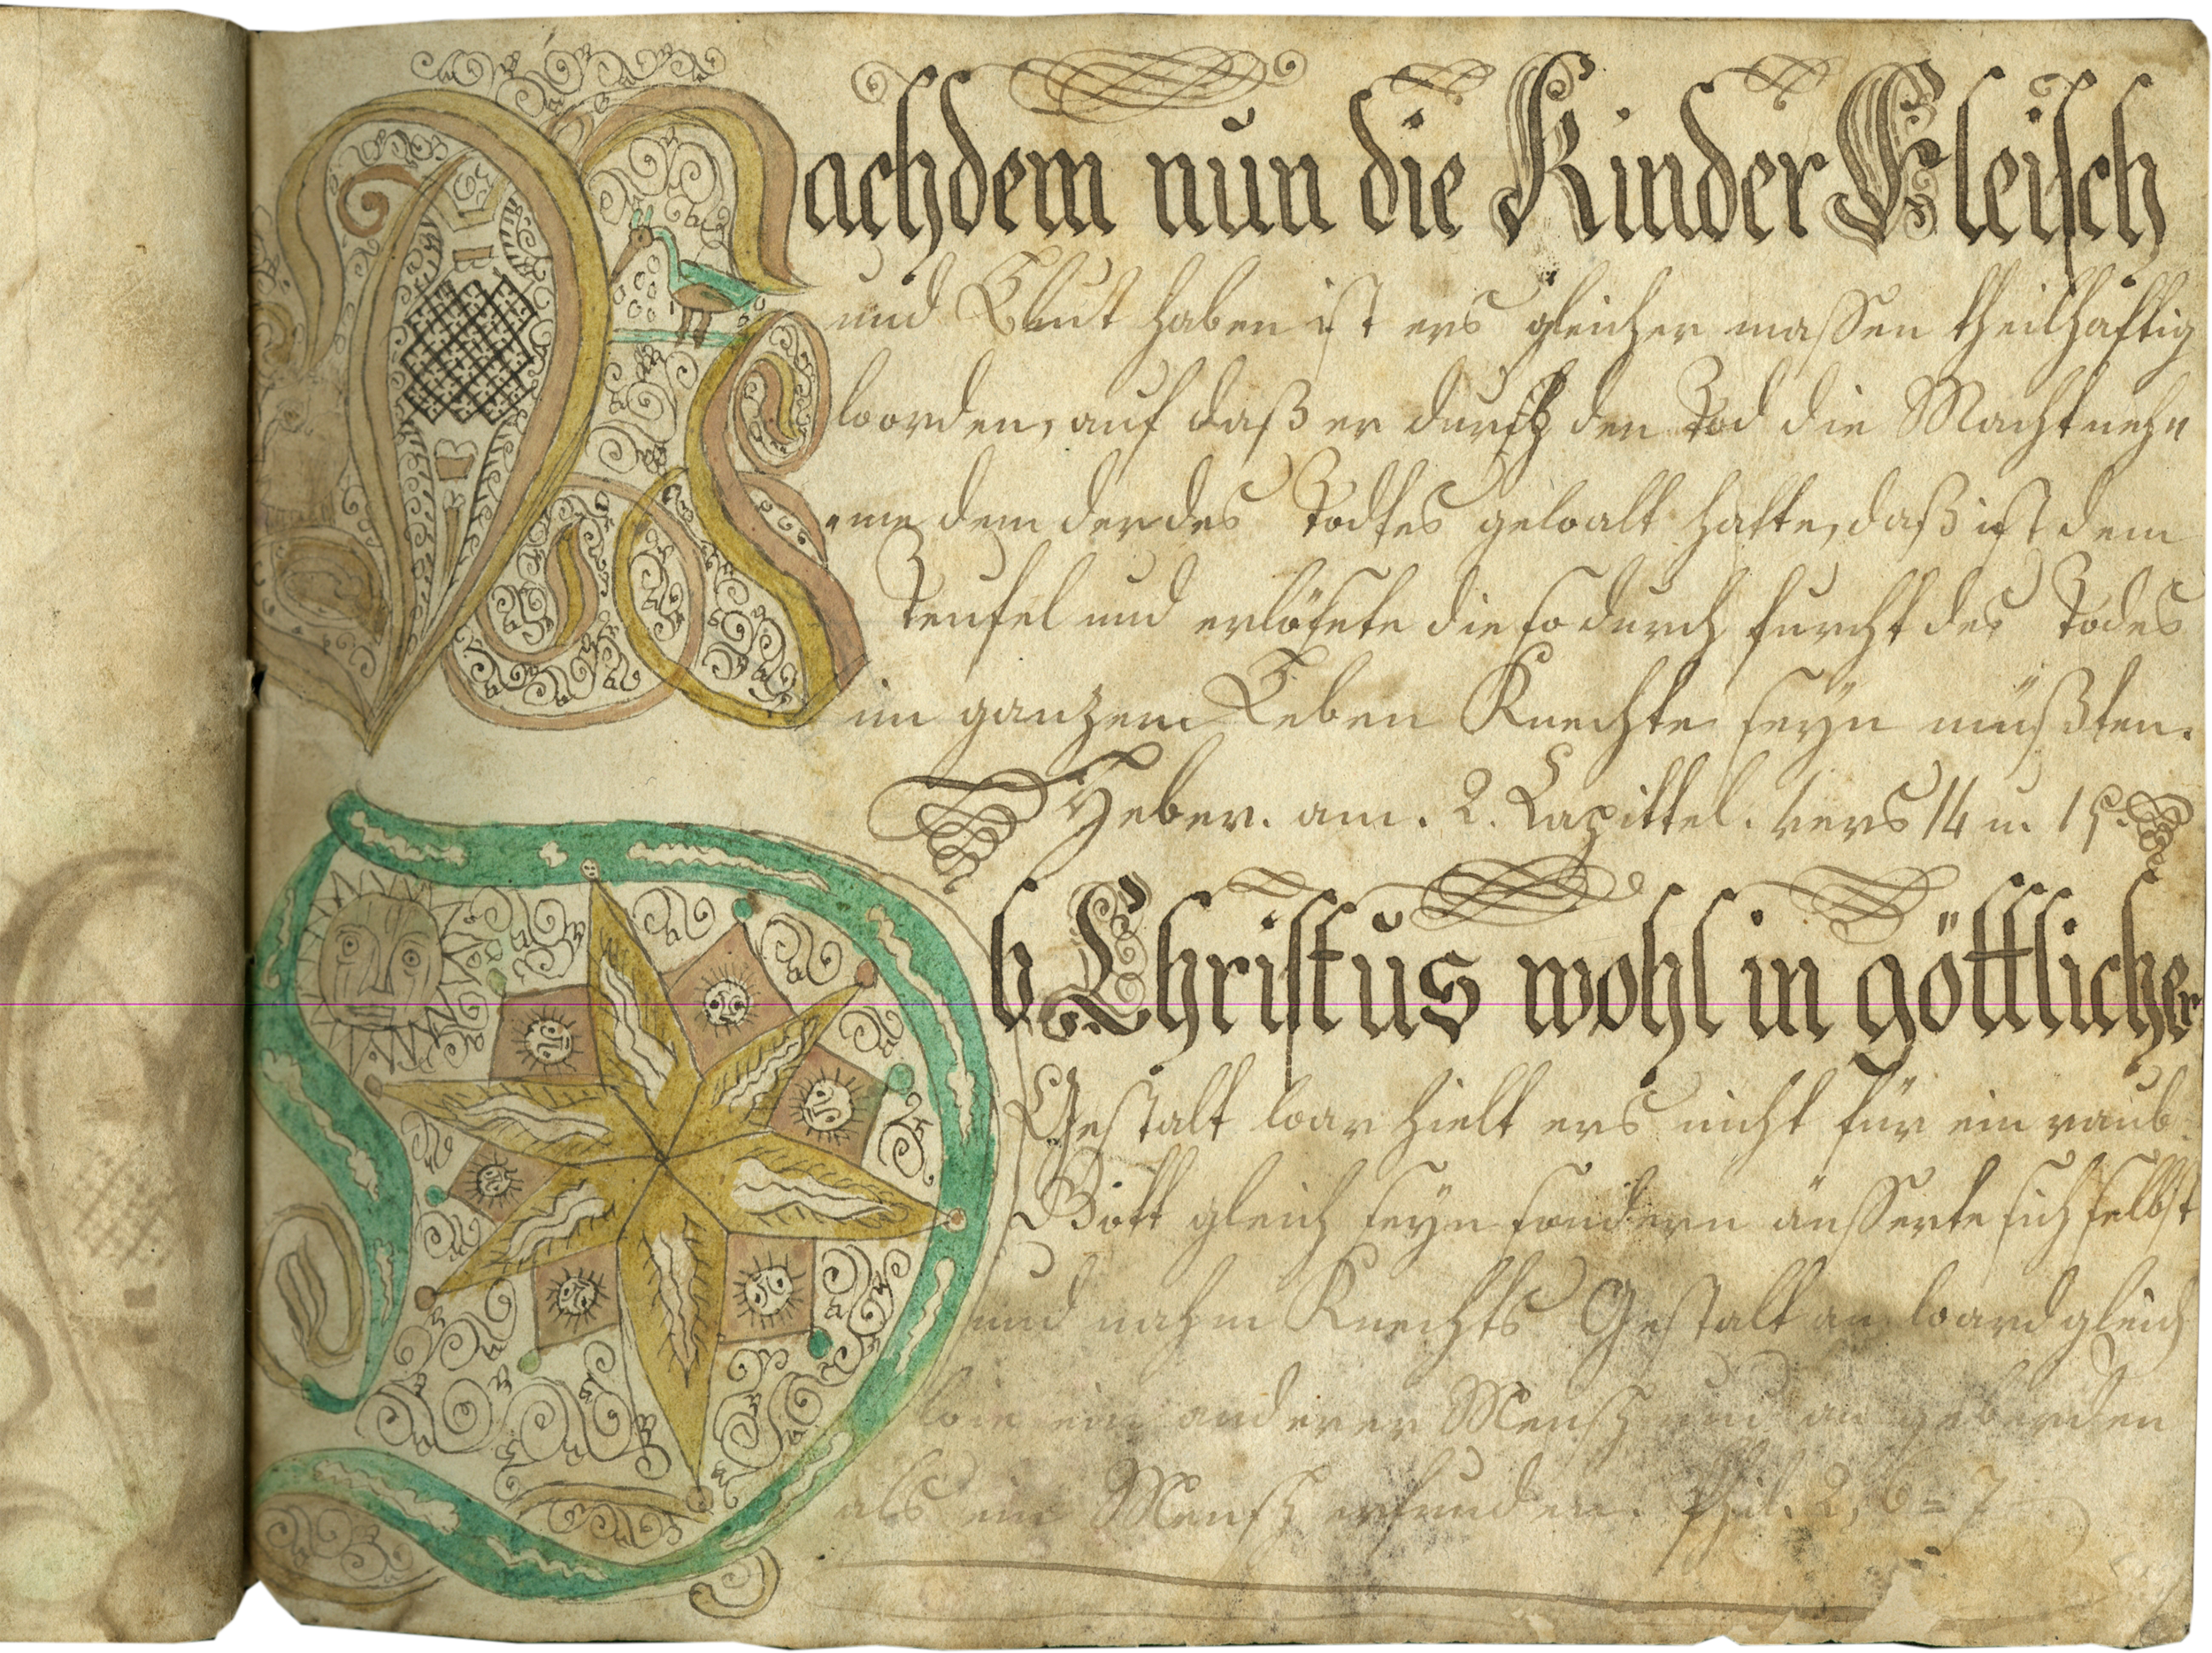 Nachdem nun die Kinder Fleisch
und Blut haben ist ers gleicher massen theilhaftig
worden, auf daß er durch den Tod die Macht neh=
=me dem der des Todtes gewalt hatte, daß ist dem
Teufel und erlösete die so durch furcht des Todes
im ganzem Leben Knechte seyn müßten.
Heber. am. 2. Capittel. vers 14 u. 15.
Ob Christus wohl in göttlicher
Gestalt war hielt ers nicht für ein raub.
Gott gleich seyn sondern äusserte sich selbst
und nahm Knechts Gestalt an ward gleich
wie ein anderer Mensch und an geberden
als ein Mensch erfunden. Phil. 2, 6=7